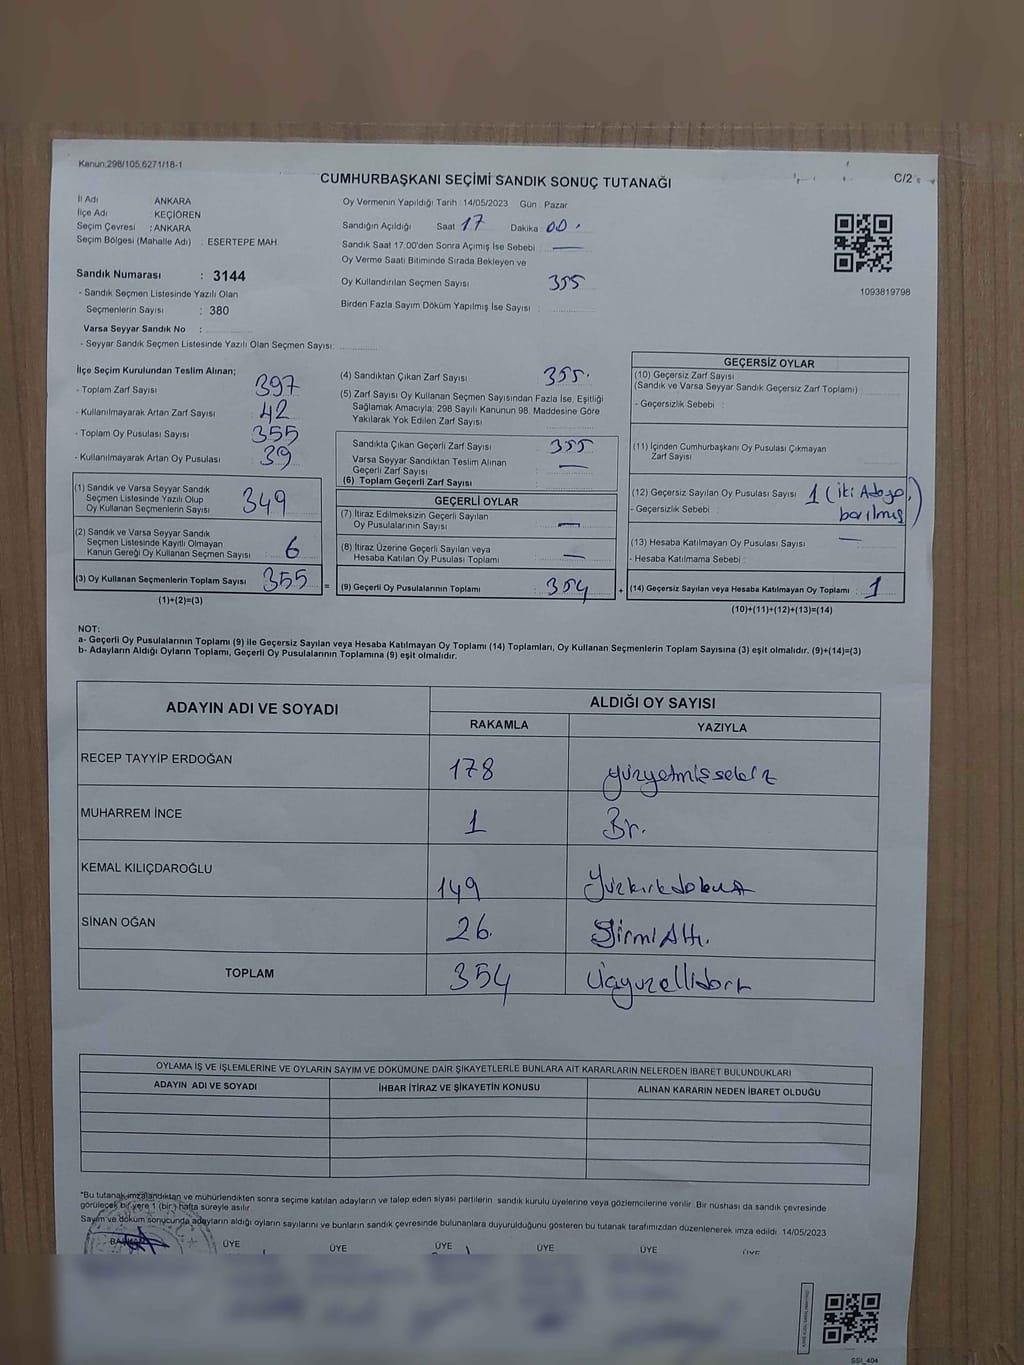 Kanun.298/105,6271/18-1
C/2
CUMHURBAŞKANI SEÇİMİ SANDIK SONUÇ TUTANAĞI
İl Adı ANKARA
İlçe Adı KEÇİÖREN
Seçim Çevresi : ANKARA
Seçim Bölgesi (Mahalle Adı) : ESERTEPE MAH
Sandık Numarası : 3144
- Sandık Seçmen Listesinde Yazılı Olan
Seçmenlerin Sayısı : 380
Varsa Seyyar Sandık No :
- Seyyar Sandık Seçmen Listesinde Yazılı Olan Seçmen Sayısı:
Oy Vermenin Yapıldığı Tarih : 14/05/2023 Gün : Pazar
Sandığın Açıldığı Saat 17 Dakika : 00.
Sandık Saat 17:00'den Sonra Açımış İse Sebebi —
Oy Verme Saati Bitiminde Sırada Bekleyen ve
Oy Kullandırılan Seçmen Sayısı 355
Birden Fazla Sayım Döküm Yapılmış İse Sayısı :
1093819798
İlçe Seçim Kurulundan Teslim Alınan;
- Toplam Zarf Sayısı 397
- Kullanılmayarak Artan Zarf Sayısı 42
- Toplam Oy Pusulası Sayısı 355
- Kullanılmayarak Artan Oy Pusulası 39
(1) Sandık ve Varsa Seyyar Sandık
Seçmen Listesinde Yazılı Olup
Oy Kullanan Seçmenlerin Sayısı 349
(2) Sandık ve Varsa Seyyar Sandık
Seçmen Listesinde Kayıtlı Olmayan
Kanun Gereği Oy Kullanan Seçmen Sayısı 6
(3) Oy Kullanan Seçmenlerin Toplam Sayısı 355
(1)+(2)=(3)
=
(4) Sandıktan Çıkan Zarf Sayısı 355.
(5) Zarf Sayısı Oy Kullanan Seçmen Sayısından Fazla İse, Eşitliği
Sağlamak Amacıyla; 298 Sayılı Kanunun 98. Maddesine Göre
Yakılarak Yok Edilen Zarf Sayısı
Sandıkta Çıkan Geçerli Zarf Sayısı 355
Varsa Seyyar Sandıktan Teslim Alınan
Geçerli Zarf Sayısı —
(6) Toplam Geçerli Zarf Sayısı
GEÇERLİ OYLAR
(7) İtiraz Edilmeksizin Geçerli Sayılan
Oy Pusulalarının Sayısı —
(8) İtiraz Üzerine Geçerli Sayılan veya
Hesaba Katılan Oy Pusulası Toplamı —
(9) Geçerli Oy Pusulalarının Toplamı 354
+
GEÇERSİZ OYLAR
(10) Geçersiz Zarf Sayısı
(Sandık ve Varsa Seyyar Sandık Geçersiz Zarf Toplamı)
- Geçersizlik Sebebi :
(11) İçinden Cumhurbaşkanı Oy Pusulası Çıkmayan
Zarf Sayısı
(12) Geçersiz Sayılan Oy Pusulası Sayısı 1 (iki Adaya,
- Geçersizlik Sebebi : barılmış)
(13) Hesaba Katılmayan Oy Pusulası Sayısı —
- Hesaba Katılmama Sebebi :
(14) Geçersiz Sayılan veya Hesaba Katılmayan Oy Toplamı 1
(10)+(11)+(12)+(13)=(14)
NOT:
a- Geçerli Oy Pusulalarının Toplamı (9) ile Geçersiz Sayılan veya Hesaba Katılmayan Oy Toplamı (14) Toplamları, Oy Kullanan Seçmenlerin Toplam Sayısına (3) eşit olmalıdır. (9)+(14)=(3)
b- Adayların Aldığı Oyların Toplamı, Geçerli Oy Pusulalarının Toplamına (9) eşit olmalıdır.
ADAYIN ADI VE SOYADI ALDIĞI OY SAYISI
RAKAMLA YAZIYLA
RECEP TAYYİP ERDOĞAN 178 yüzyetmişsekiz
MUHARREM İNCE 1 Bir.
KEMAL KILIÇDAROĞLU 149 Yüzkırkdokuz
SİNAN OĞAN 26. YirmiAltı.
TOPLAM 354 Üçyüzellidört
OYLAMA İŞ VE İŞLEMLERİNE VE OYLARIN SAYIM VE DÖKÜMÜNE DAİR ŞİKAYETLERLE BUNLARA AİT KARARLARIN NELERDEN İBARET BULUNDUKLARI
ADAYIN ADI VE SOYADI İHBAR İTİRAZ VE ŞİKAYETİN KONUSU ALINAN KARARIN NEDEN İBARET OLDUĞU
*Bu tutanak imzalandıktan ve mühürlendikten sonra seçime katılan adayların ve talep eden siyasi partilerin sandık kurulu üyelerine veya gözlemcilerine verilir. Bir nüshası da sandık çevresinde
görülecek bir yere 1 (bir) hafta süreyle asılır.
Sayım ve döküm sonucunda adayların aldığı oyların sayılarını ve bunların sandık çevresinde bulunanlara duyurulduğunu gösteren bu tutanak tarafımızdan düzenlenerek imza edildi. 14/05/2023
ÜYE ÜYE ÜYE ÜYE ÜYE ÜYE
SSI_404